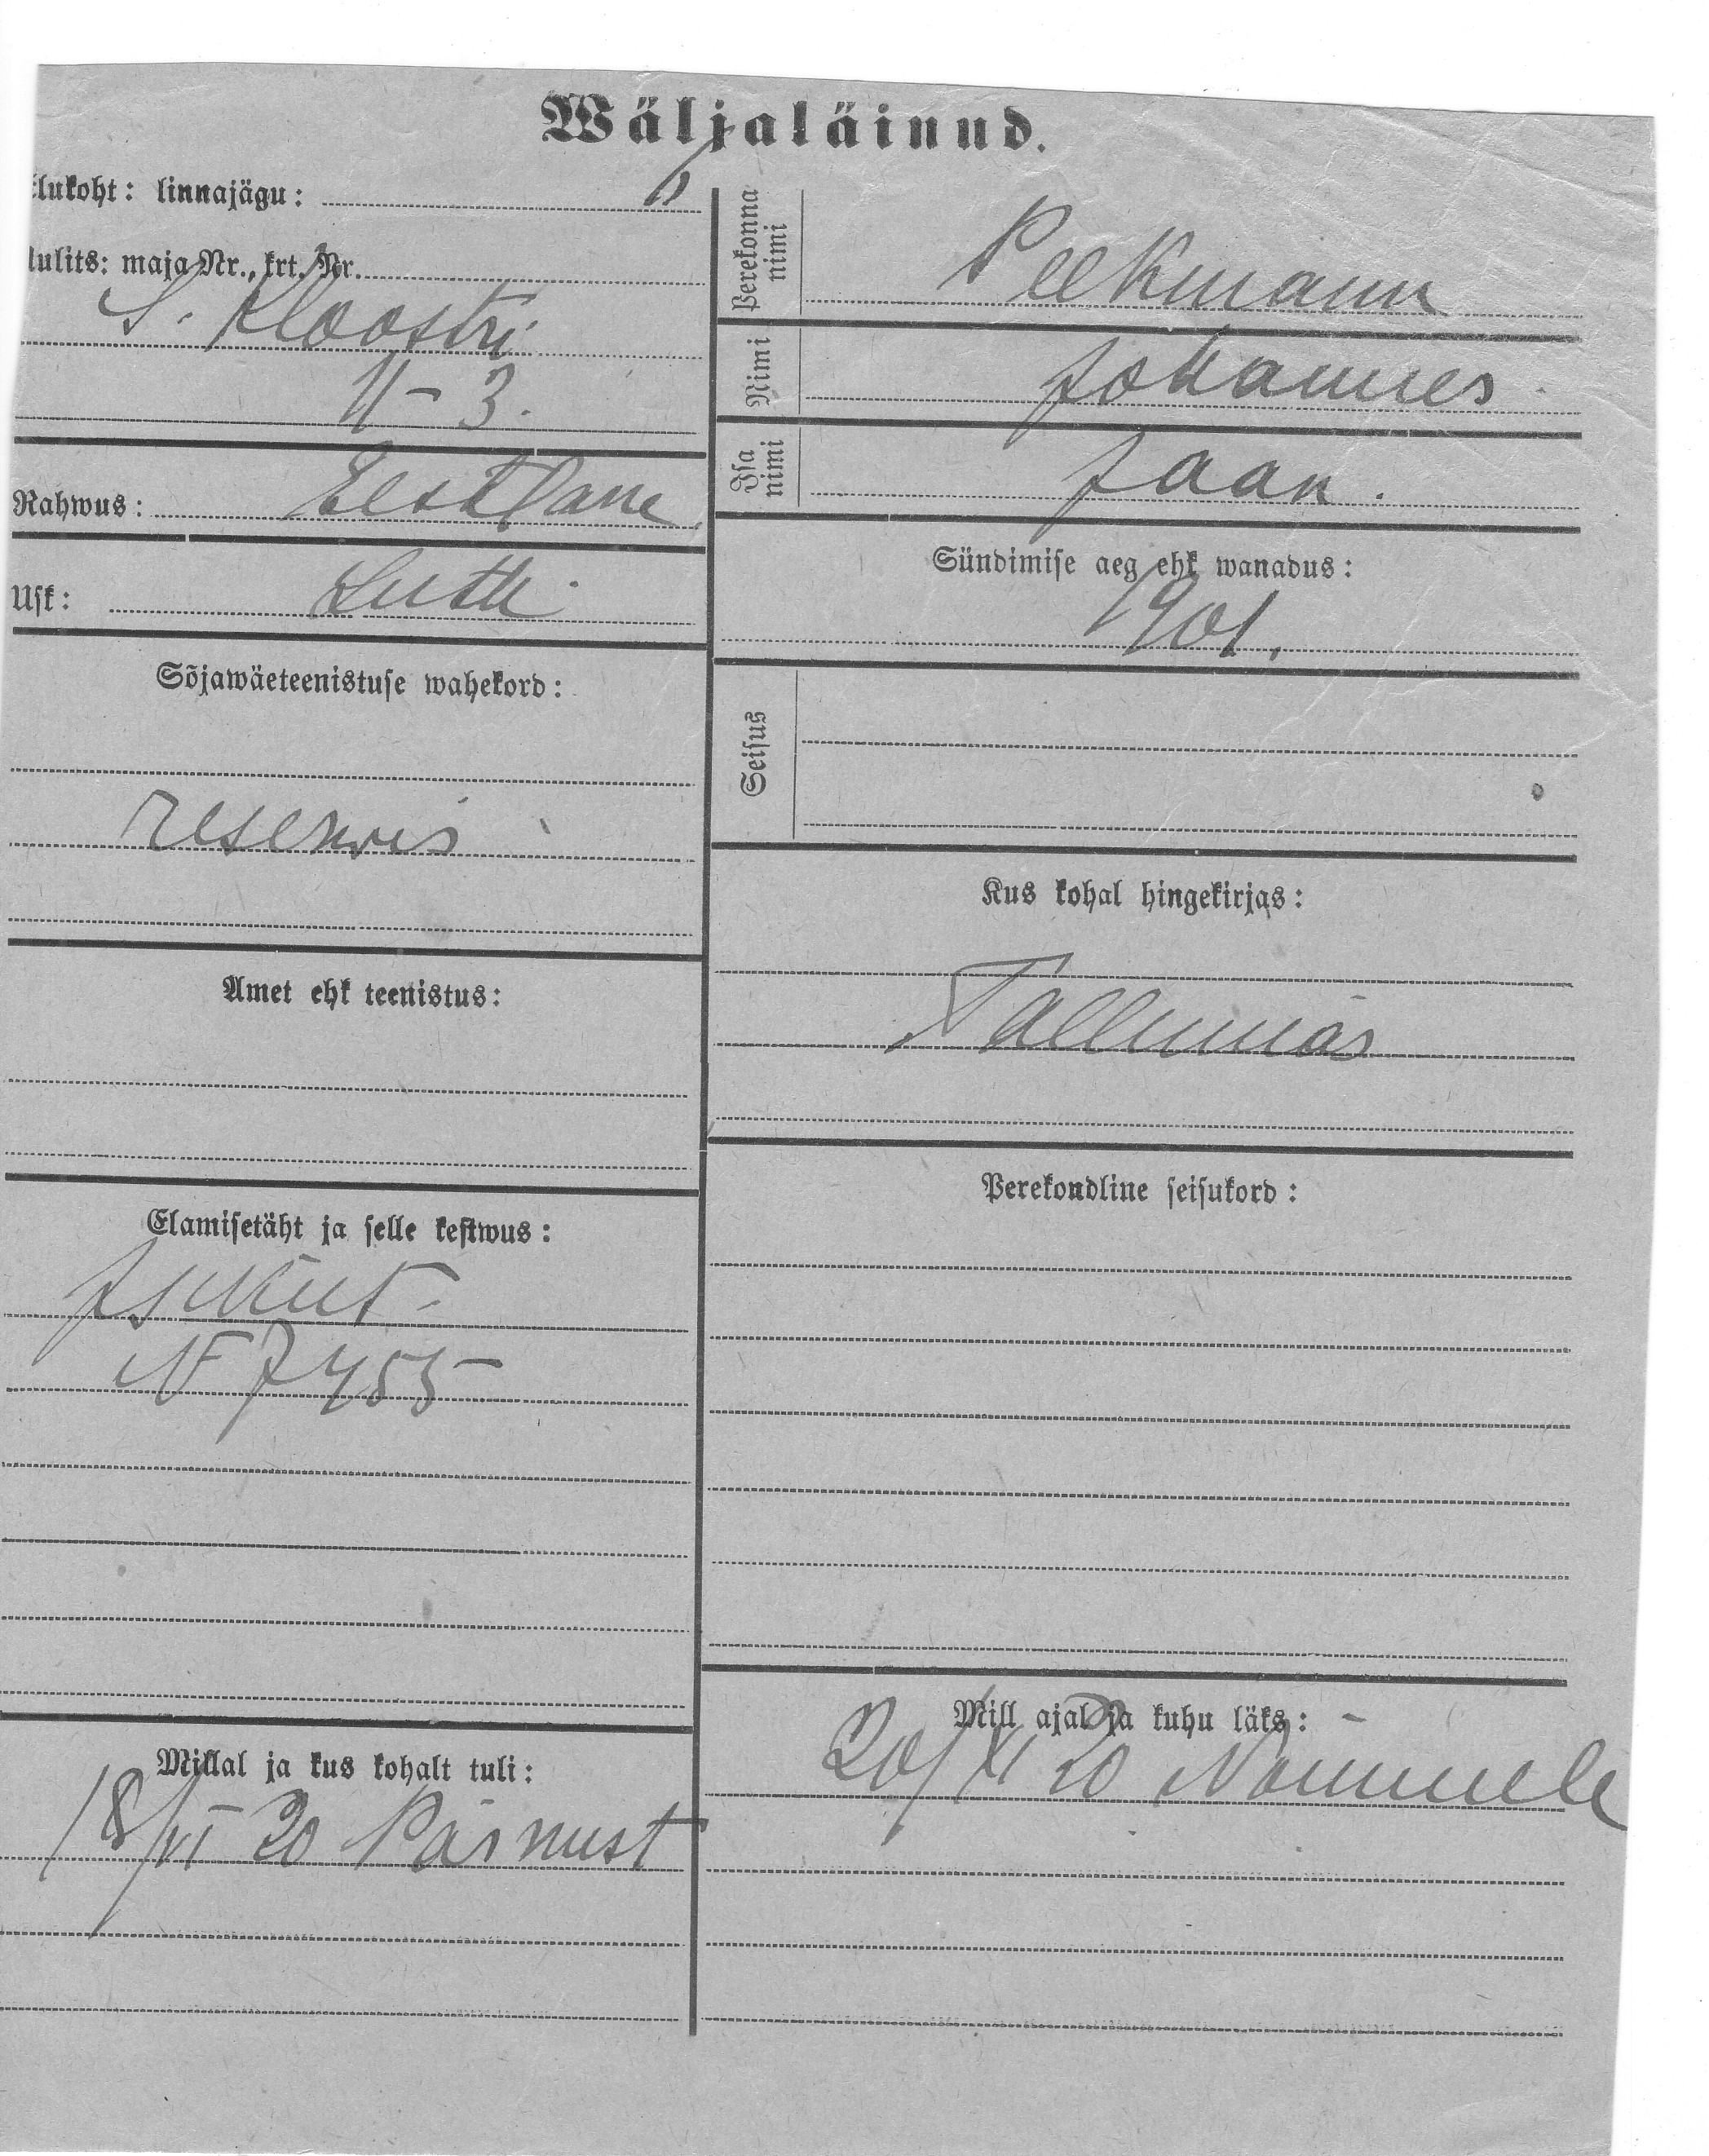 Wäljaläinud.
lukoht: linnajägu:
lulits: maja Nr., krt. Nr.
S. Kloostri
11 – 3.
Rahwus: Eestlane
Usk: Luth.
Sõjawäeteenistuse wahekord:
reserwis
Amet ehk teenistus:
Elamisetäht ja selle kestwus:
Isikut.
№ 7455
Millal ja kus kohalt tuli:
18/VI 20 Pärnust
Perekonna nimi Peekmann
Nimi Johannes.
Isa nimi Jaan.
Sündimise aeg ehk wanadus:
1901.
Seisus
Kus kohal hingekirjas:
Tallinnas
Perekondline seisukord:
Mill ajal ja kuhu läks:
20/XI 20 Nõmmele